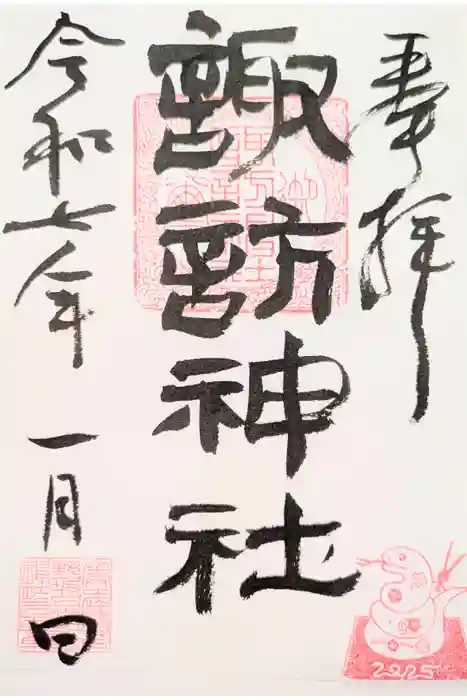 奉拝
諏訪神社
令和七年
一月
日
2025